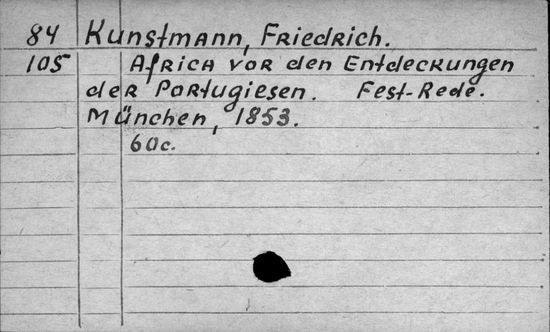 84 Kunstmann, Friedrich.
105 Africa vor den Entdeckungen
der Portugiesen. Fest-Rede.
München, 1853.
60c.